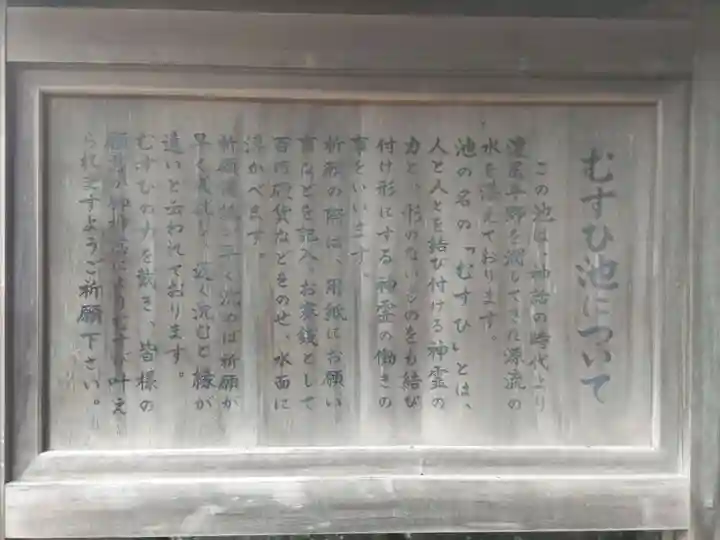 むすひ池について
この池は、神話の時代より
濃尾平野を潤してきた源流の
水を湛えております。
池の名の「むすひ」とは、
人と人とを結び付ける神霊の
力と、形のないものをも結び
付け形にする神霊の働きの
事をいいます。
祈願の際は、用紙にお願い
事などを記入、お賽銭として
百円硬貨などをのせ、水面に
浮かべます。
祈願用紙が早く沈めば祈願が
早く 近くに沈むと縁が
遠いと云われております。
むすひの力を戴き、皆様の
叶え
られますようご祈願下さい。